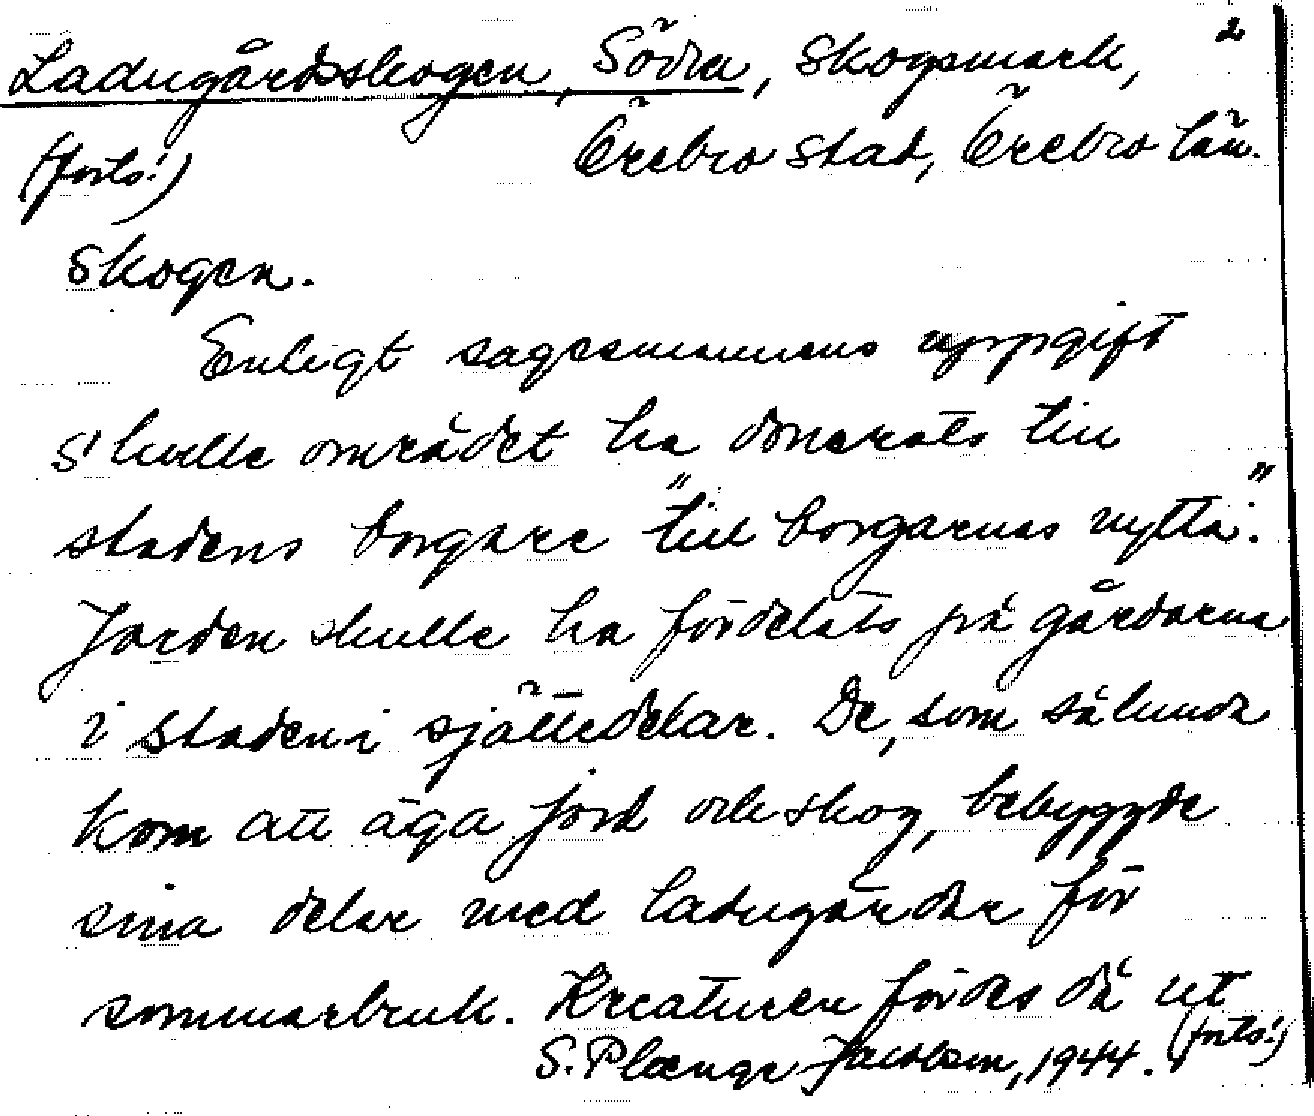 Ladugårdsskogen, Södra, Skogsmark, 2
(forts.) Örebro stad, Örebro län.
skogen.
Enligt sagesmannens uppgift
skulle området ha donerats till
stadens borgare "till borgarnas nytta".
Jorden skulle ha fördelats på gårdarna
i staden i sjättedelar. De, som sålunda
kom att äga jord och skog, bebyggde
sina delar med ladugårdar för
sommarbruk. Kreaturen fördes då ut
(forts.)
S. Plænge Jacobson, 1944.